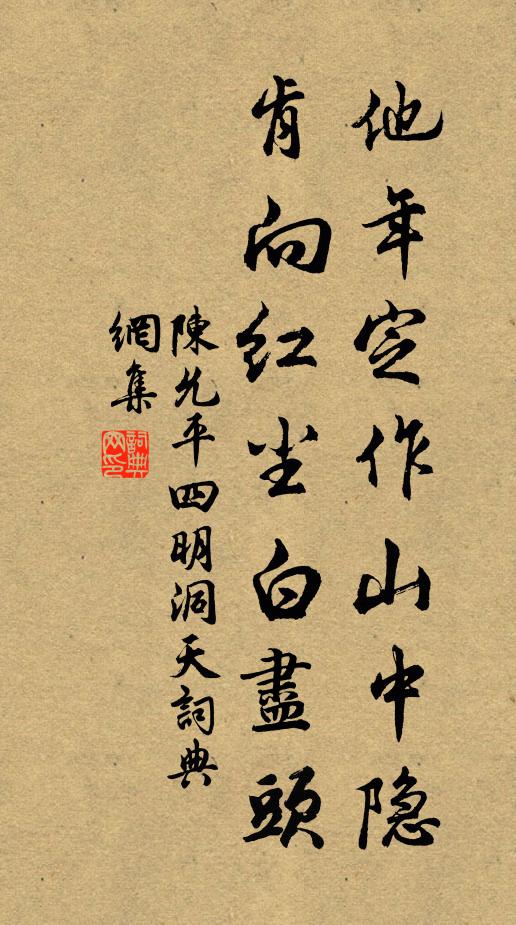 他年定作山中隐
肯向红尘白盡頭
陳允平四明洞天詞典
網集
詞典
网印